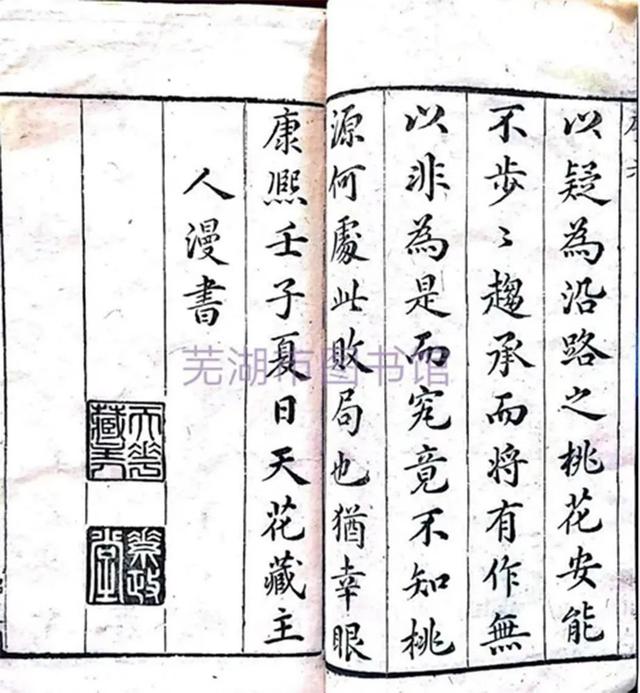 以疑為沿路之桃花安能
不步〻趨承而將有作無
以非為是而究竟不知桃
源何處此敗局也猶幸眼
康熙壬子夏日天花藏主
人漫書
天花藏
芜湖市图书馆